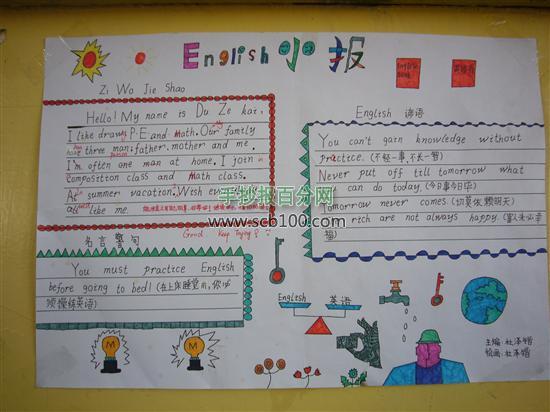 English 小报
Zi Wo Jie Shao
Hello! My name is Du Ze kai.
I like draws P.E and math. Our family
three man: father. mother and me.
I'm often one man at home. I join
composition class and Math class.
summer vacation. Wish every
like me.
Good Keep Trying!
名言警句
You must practice English
before going to bed! (在上床睡觉前,你必
须操练英语)
English 谚语
You can't gain knowledge without
practice. (不经一事,不长一智)
Never put off till tomorrow what
can do today. (今日事今日毕)
Tomorrow never comes. (切莫依赖明天)
rich are not always happy. (富人未必幸
福)
English 英语
M
M
主编: 杜泽锴
绘画: 杜泽锴
手抄报百分网
www.scb100.com